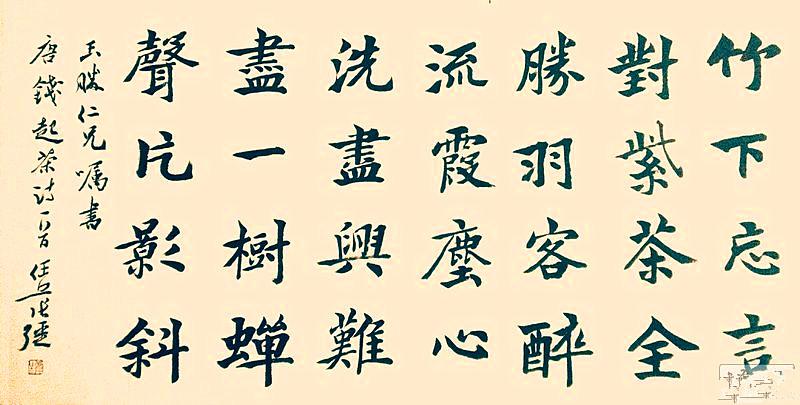 竹下忘言
對紫茶全
勝羽客醉
流霞塵心
洗盡興難
盡一樹蟬
聲片影斜
玉勝仁兄囑書
唐錢起茶詩一首